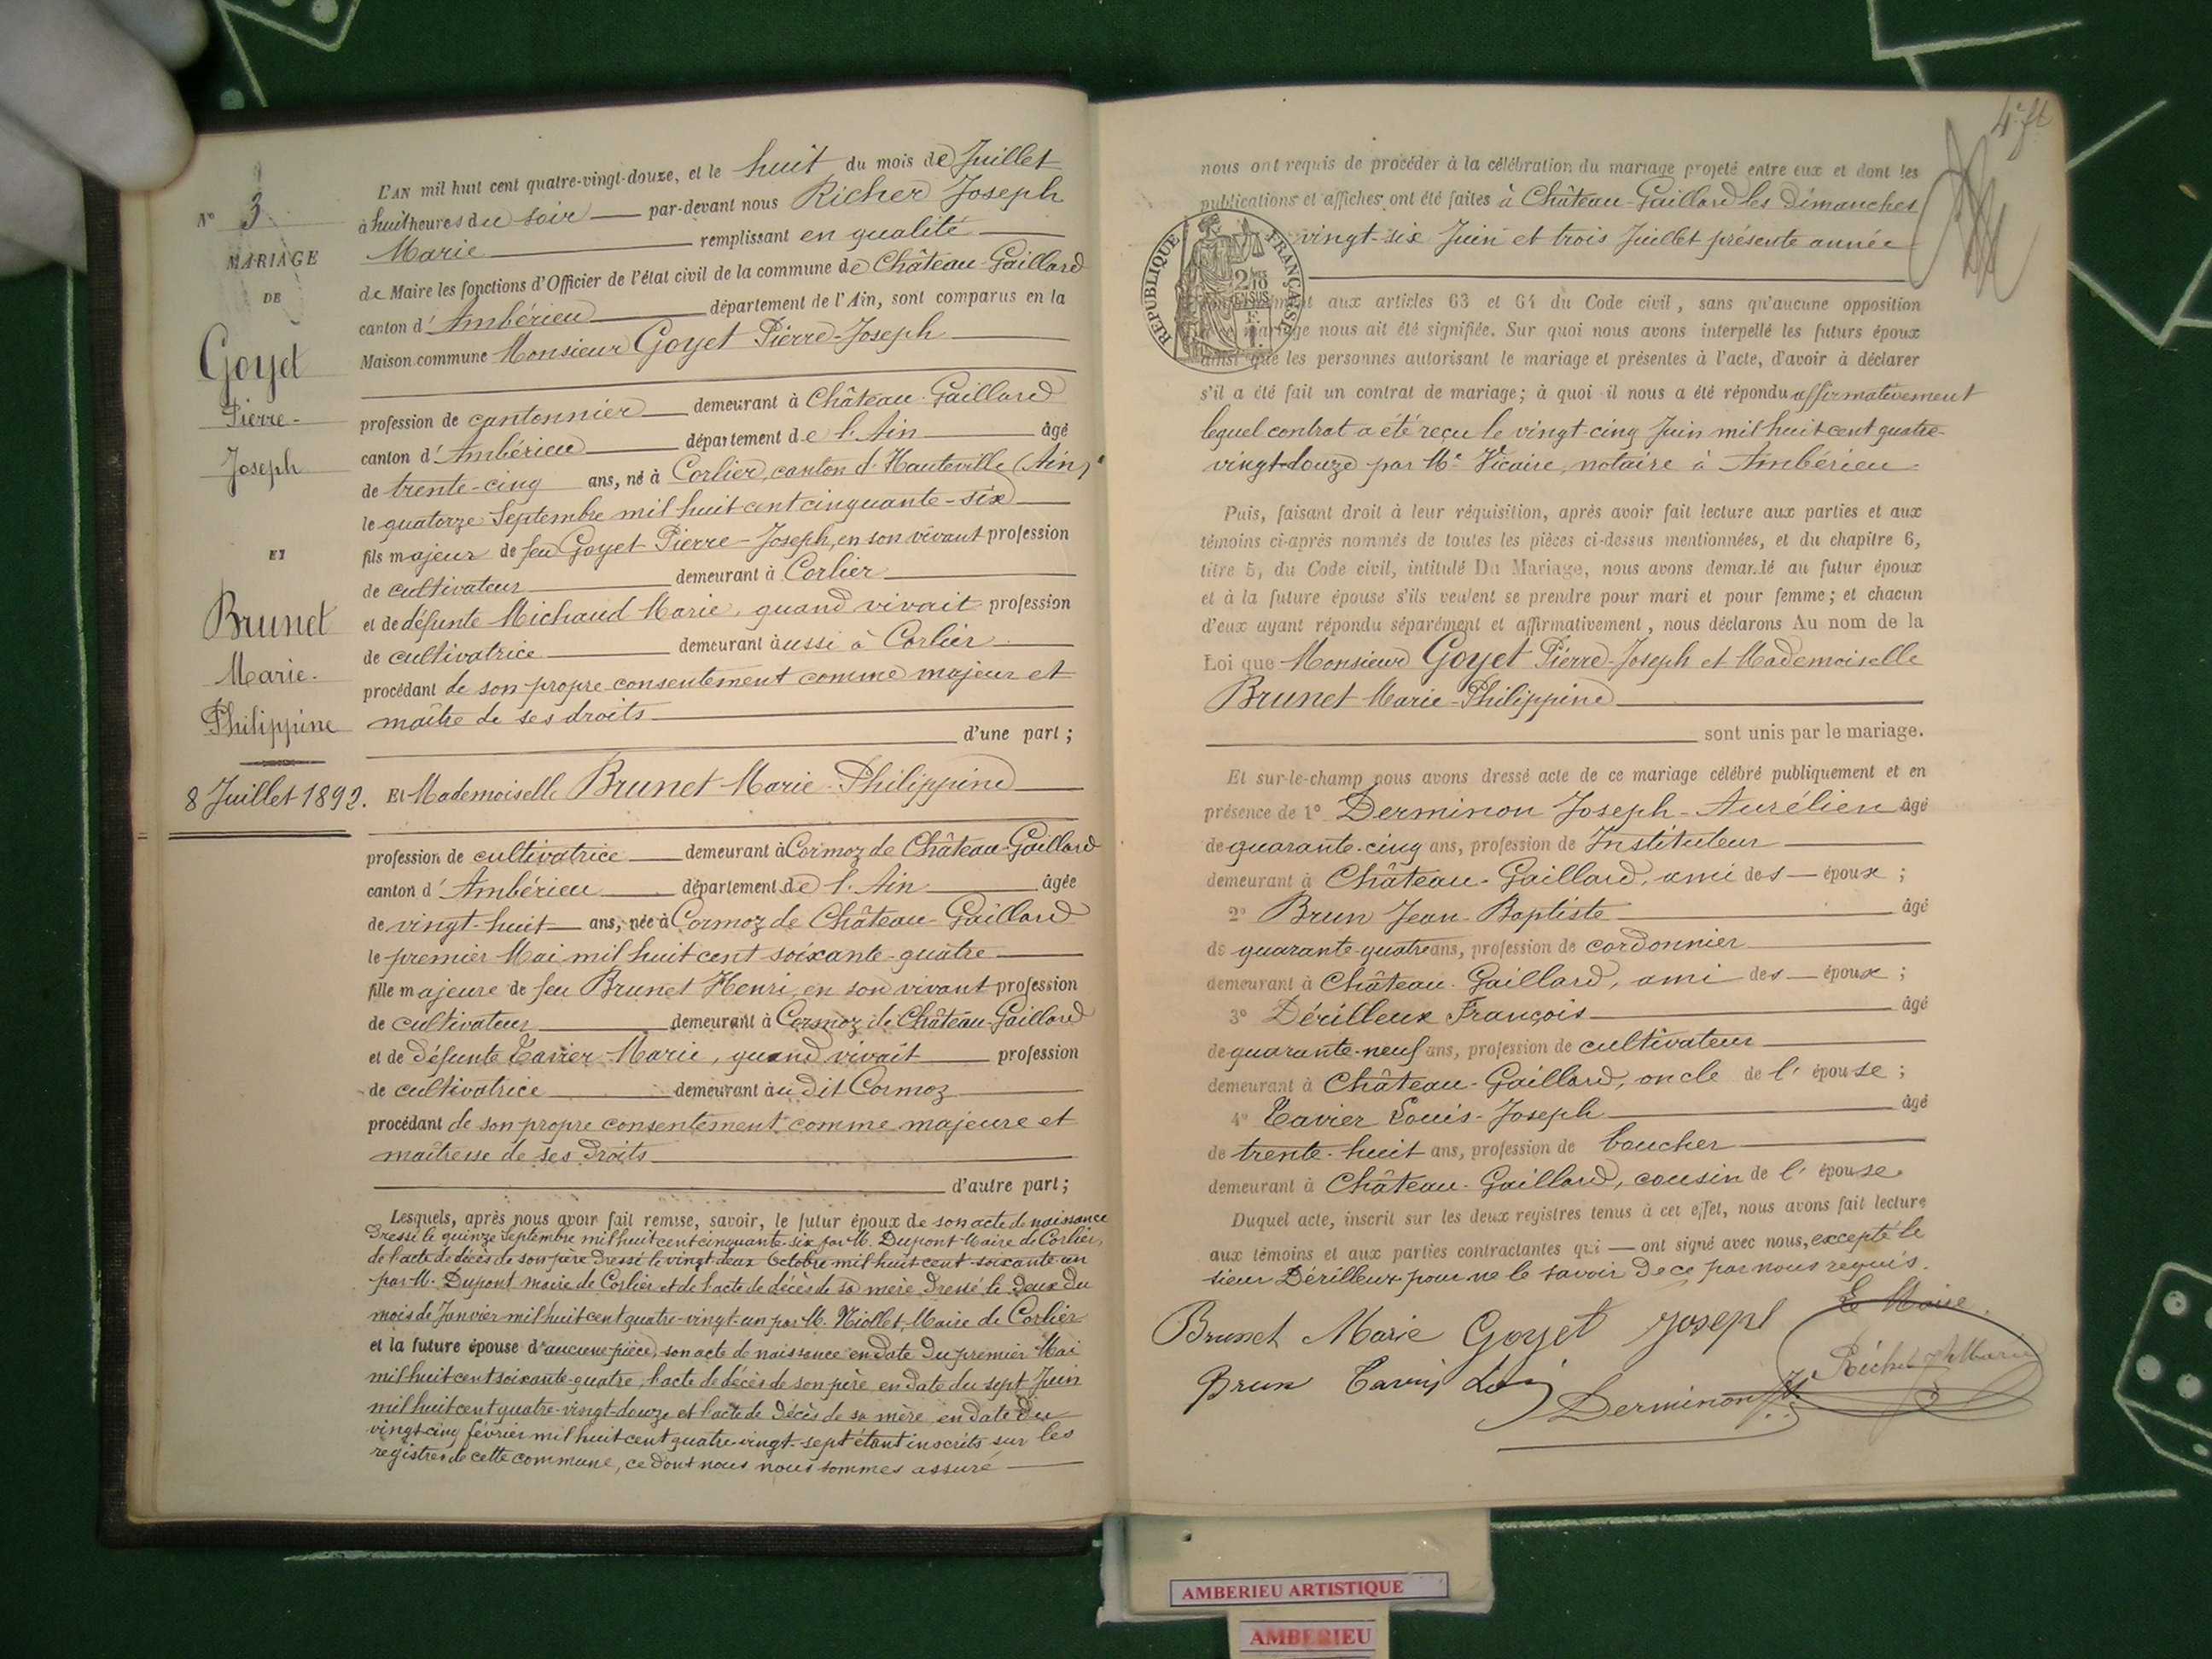 N° 3
MARIAGE
DE
Goyet
Pierre-
Joseph
ET
Brunet
Marie-
Philippine
8 Juillet 1892.
L'AN mil huit cent quatre-vingt-douze, et le huit du mois de Juillet
à huit heures du soir par-devant nous Richer Joseph
Marie remplissant en qualité
de Maire les fonctions d'Officier de l'état civil de la commune de Château-Gaillard
canton d'Ambérieu département de l'Ain, sont comparus en la
Maison commune Monsieur Goyet Pierre-Joseph
profession de cantonnier demeurant à Château-Gaillard
canton d'Ambérieu département de l'Ain âgé
de trente-cinq ans, né à Corlier, canton d'Hauteville (Ain)
le quatorze Septembre mil huit cent cinquante-six
fils majeur de feu Goyet Pierre-Joseph, en son vivant profession
de cultivateur demeurant à Corlier
et de défunte Michaud Marie, quand vivait profession
de cultivatrice demeurant aussi à Corlier
procédant de son propre consentement comme majeur et
maître de ses droits
d'une part;
Et Mademoiselle Brunet Marie-Philippine
profession de cultivatrice demeurant à Cormoz de Château-Gaillard
canton d'Ambérieu département de l'Ain âgée
de vingt-huit ans, née à Cormoz de Château-Gaillard
le premier Mai mil huit cent soixante-quatre
fille majeure de feu Brunet Henri, en son vivant profession
de cultivateur demeurant à Cormoz de Château-Gaillard
et de défunte Tavier Marie, quand vivait profession
de cultivatrice demeurant au dit Cormoz
procédant de son propre consentement comme majeure et
maîtresse de ses droits
d'autre part;
Lesquels, après nous avoir fait remise, savoir, le futur époux de son acte de naissance
dressé le quinze Septembre mil huit cent cinquante-six par M. Dupont Maire de Corlier,
de l'acte de décès de son père dressé le vingt-deux Octobre mil huit cent soixante-un
par M. Dupont maire de Corlier et de l'acte de décès de sa mère dressé le deux du
mois de Janvier mil huit cent quatre-vingt-un par M. Niollet, Maire de Corlier
et la future épouse d'aucune pièce, son acte de naissance en date du premier Mai
mil huit cent soixante-quatre, l'acte de décès de son père en date du sept Juin
mil huit cent quatre-vingt-douze et l'acte de décès de sa mère en date du
vingt-cinq février mil huit cent quatre-vingt-sept étant inscrits sur les
registres de cette commune, ce dont nous nous sommes assuré
nous ont requis de procéder à la célébration du mariage projeté entre eux et dont les
publications et affiches ont été faites à Château-Gaillard les dimanches
vingt-six Juin et trois Juillet présente année
REPUBLIQUE FRANÇAISE
aux articles 63 et 64 du Code civil, sans qu'aucune opposition
mariage nous ait été signifiée. Sur quoi nous avons interpellé les futurs époux
ainsi que les personnes autorisant le mariage et présentes à l'acte, d'avoir à déclarer
s'il a été fait un contrat de mariage; à quoi il nous a été répondu affirmativement
lequel contrat a été reçu le vingt-cinq Juin mil huit cent quatre-
vingt-douze par Me Vicaire, notaire à Ambérieu
Puis, faisant droit à leur réquisition, après avoir fait lecture aux parties et aux
témoins ci-après nommés de toutes les pièces ci-dessus mentionnées, et du chapitre 6,
titre 5, du Code civil, intitulé Du Mariage, nous avons demandé au futur époux
et à la future épouse s'ils veulent se prendre pour mari et pour femme; et chacun
d'eux ayant répondu séparément et affirmativement, nous déclarons Au nom de la
Loi que Monsieur Goyet Pierre-Joseph et Mademoiselle
Brunet Marie-Philippine
sont unis par le mariage.
Et sur-le-champ nous avons dressé acte de ce mariage célébré publiquement et en
présence de 1° Derminon Joseph-Aurélien âgé
de quarante-cinq ans, profession de Instituteur
demeurant à Château-Gaillard, ami des époux;
2° Brun Jean-Baptiste âgé
de quarante-quatre ans, profession de cordonnier
demeurant à Château-Gaillard, ami des époux;
3° Dérilleux François âgé
de quarante-neuf ans, profession de cultivateur
demeurant à Château-Gaillard, oncle de l'épouse;
4° Tavier Louis-Joseph âgé
de trente-huit ans, profession de boucher
demeurant à Château-Gaillard, cousin de l'épouse
Duquel acte, inscrit sur les deux registres tenus à cet effet, nous avons fait lecture
aux témoins et aux parties contractantes qui ont signé avec nous, excepté le
sieur Dérilleux pour ne le savoir de ce par nous requis.
Le Maire
Brunet Marie Goyet Joseph
Brun Derminon
AMBERIEU ARTISTIQUE
AMBERIEU